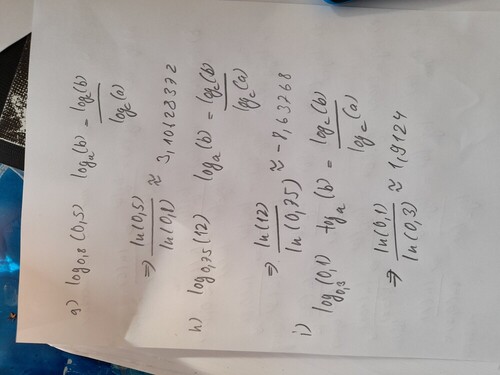 g) log₀,₈(0,5) logₐ(b) = log_c(b) / log_c(a)
⇒ ln(0,5) / ln(0,8) ≈ 3,10628372
h) log₀,₇₅(12) logₐ(b) = log_c(b) / log_c(a)
⇒ ln(12) / ln(0,75) ≈ -8,63768
i) log₀,₃(0,1) logₐ(b) = log_c(b) / log_c(a)
⇒ ln(0,1) / ln(0,3) ≈ 1,9124